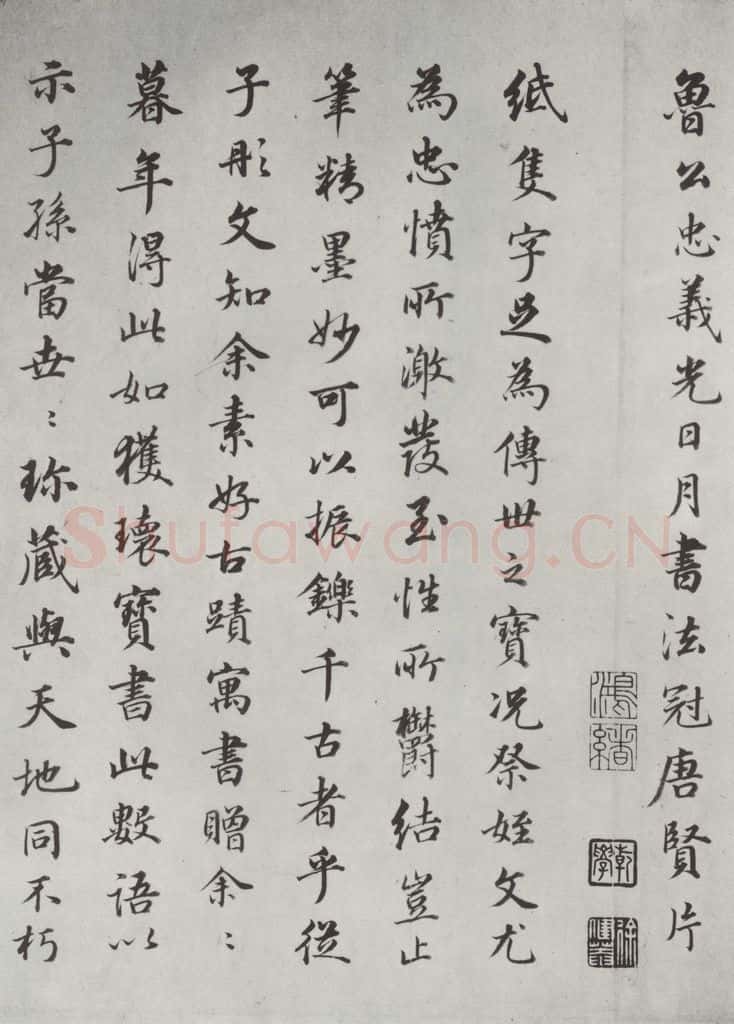 魯公忠義光日月書法冠唐賢片
紙隻字足為傳世之寶况祭姪文尤
為忠憤所激發至性所鬱結豈止
筆精墨妙可以振鑠千古者乎從
子彤文知余素好古蹟寓書贈余〻
暮年得此如獲瓌寶書此數語以
示子孫當世〻珎藏與天地同不朽
鴻緒
乾學
Shufawang.CN